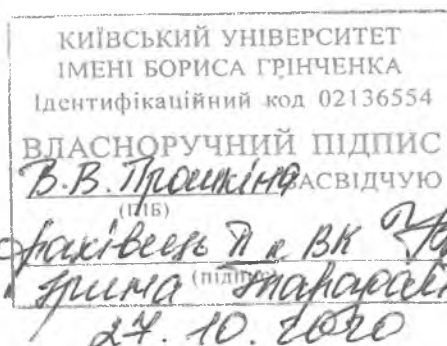 КИЇВСЬКИЙ УНІВЕРСИТЕТ
ІМЕНІ БОРИСА ГРІНЧЕНКА
Ідентифікаційний код 02136554
ВЛАСНОРУЧНИЙ ПІДПИС
В.В. Прошкіна ЗАСВІДЧУЮ
(ПІБ)
фахівець
(підпис)
27. 10. 2020